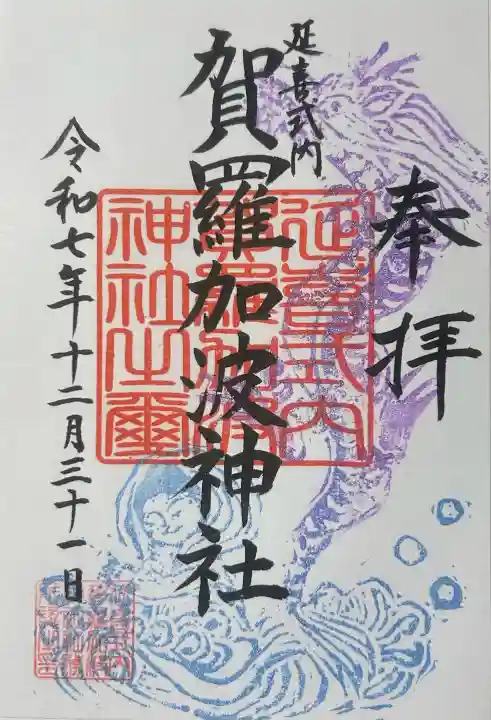 奉拝
延喜式内
賀羅加波神社
令和七年十二月三十一日
延喜式内
賀羅加波
神社之璽